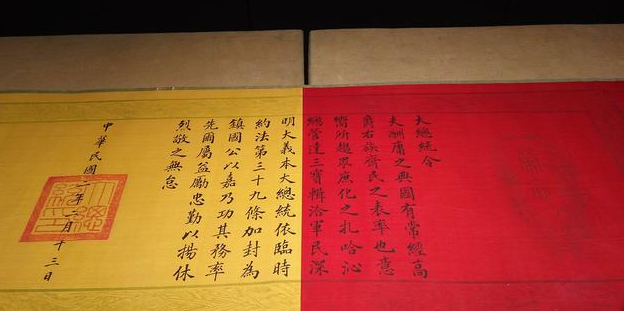 大總統令
夫酬庸之典國有常經高
爵右族齊民之表率也意
嚮所趨眾庶化之扎哈沁
總管達三寶輯洽軍民深
明大義本大總統依臨時
約法第三十九條加封為
鎮國公以嘉乃功其務率
先爾屬益勵忠勤以揚休
烈敬之無怠
中華民國年月十三日